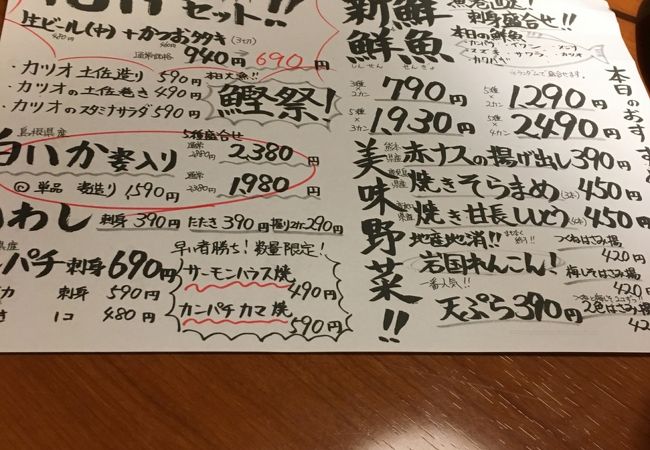 セット!!
生ビール(中)+かつおタタキ(3切)
通常価格 940円 690円
・カツオ 土佐造り 590円 本日大漁!!
・カツオの土佐巻き 490円
・カツオのスタミナサラダ 590円
鰹祭!
島根県産
白いか姿入り
5種盛合せ
通常 2,380円
◎単品 姿造り 1,590円
通常 1,980円
いわし 刺身390円 たたき390円 握り2カン290円
パチ刺身690円
刺身 590円
1コ 480円
早い者勝ち!数量限定!
サーモンハラス焼 490円
カンパチカマ焼 590円
新鮮鮮魚
しんせん せんぎょ
刺身盛合せ!!
本日の鮮魚
カンパチ イワシ
スズキ サワラ カツオ
3種×2カン 790円
5種×2カン 1290円
5種× 1,930円
5種×4カン 2490円
本日のおすすめ
美味野菜!!
熊本県産 赤ナスの揚げ出し390円
焼きそらまめ(3本)450円
焼き甘長しとう(4本)450円
地産地消!!
岩国れんこん!
一番人気!!
天ぷら390円
つくねはさみ揚 420円
梅しそはさみ揚 420円
2色はさみ揚